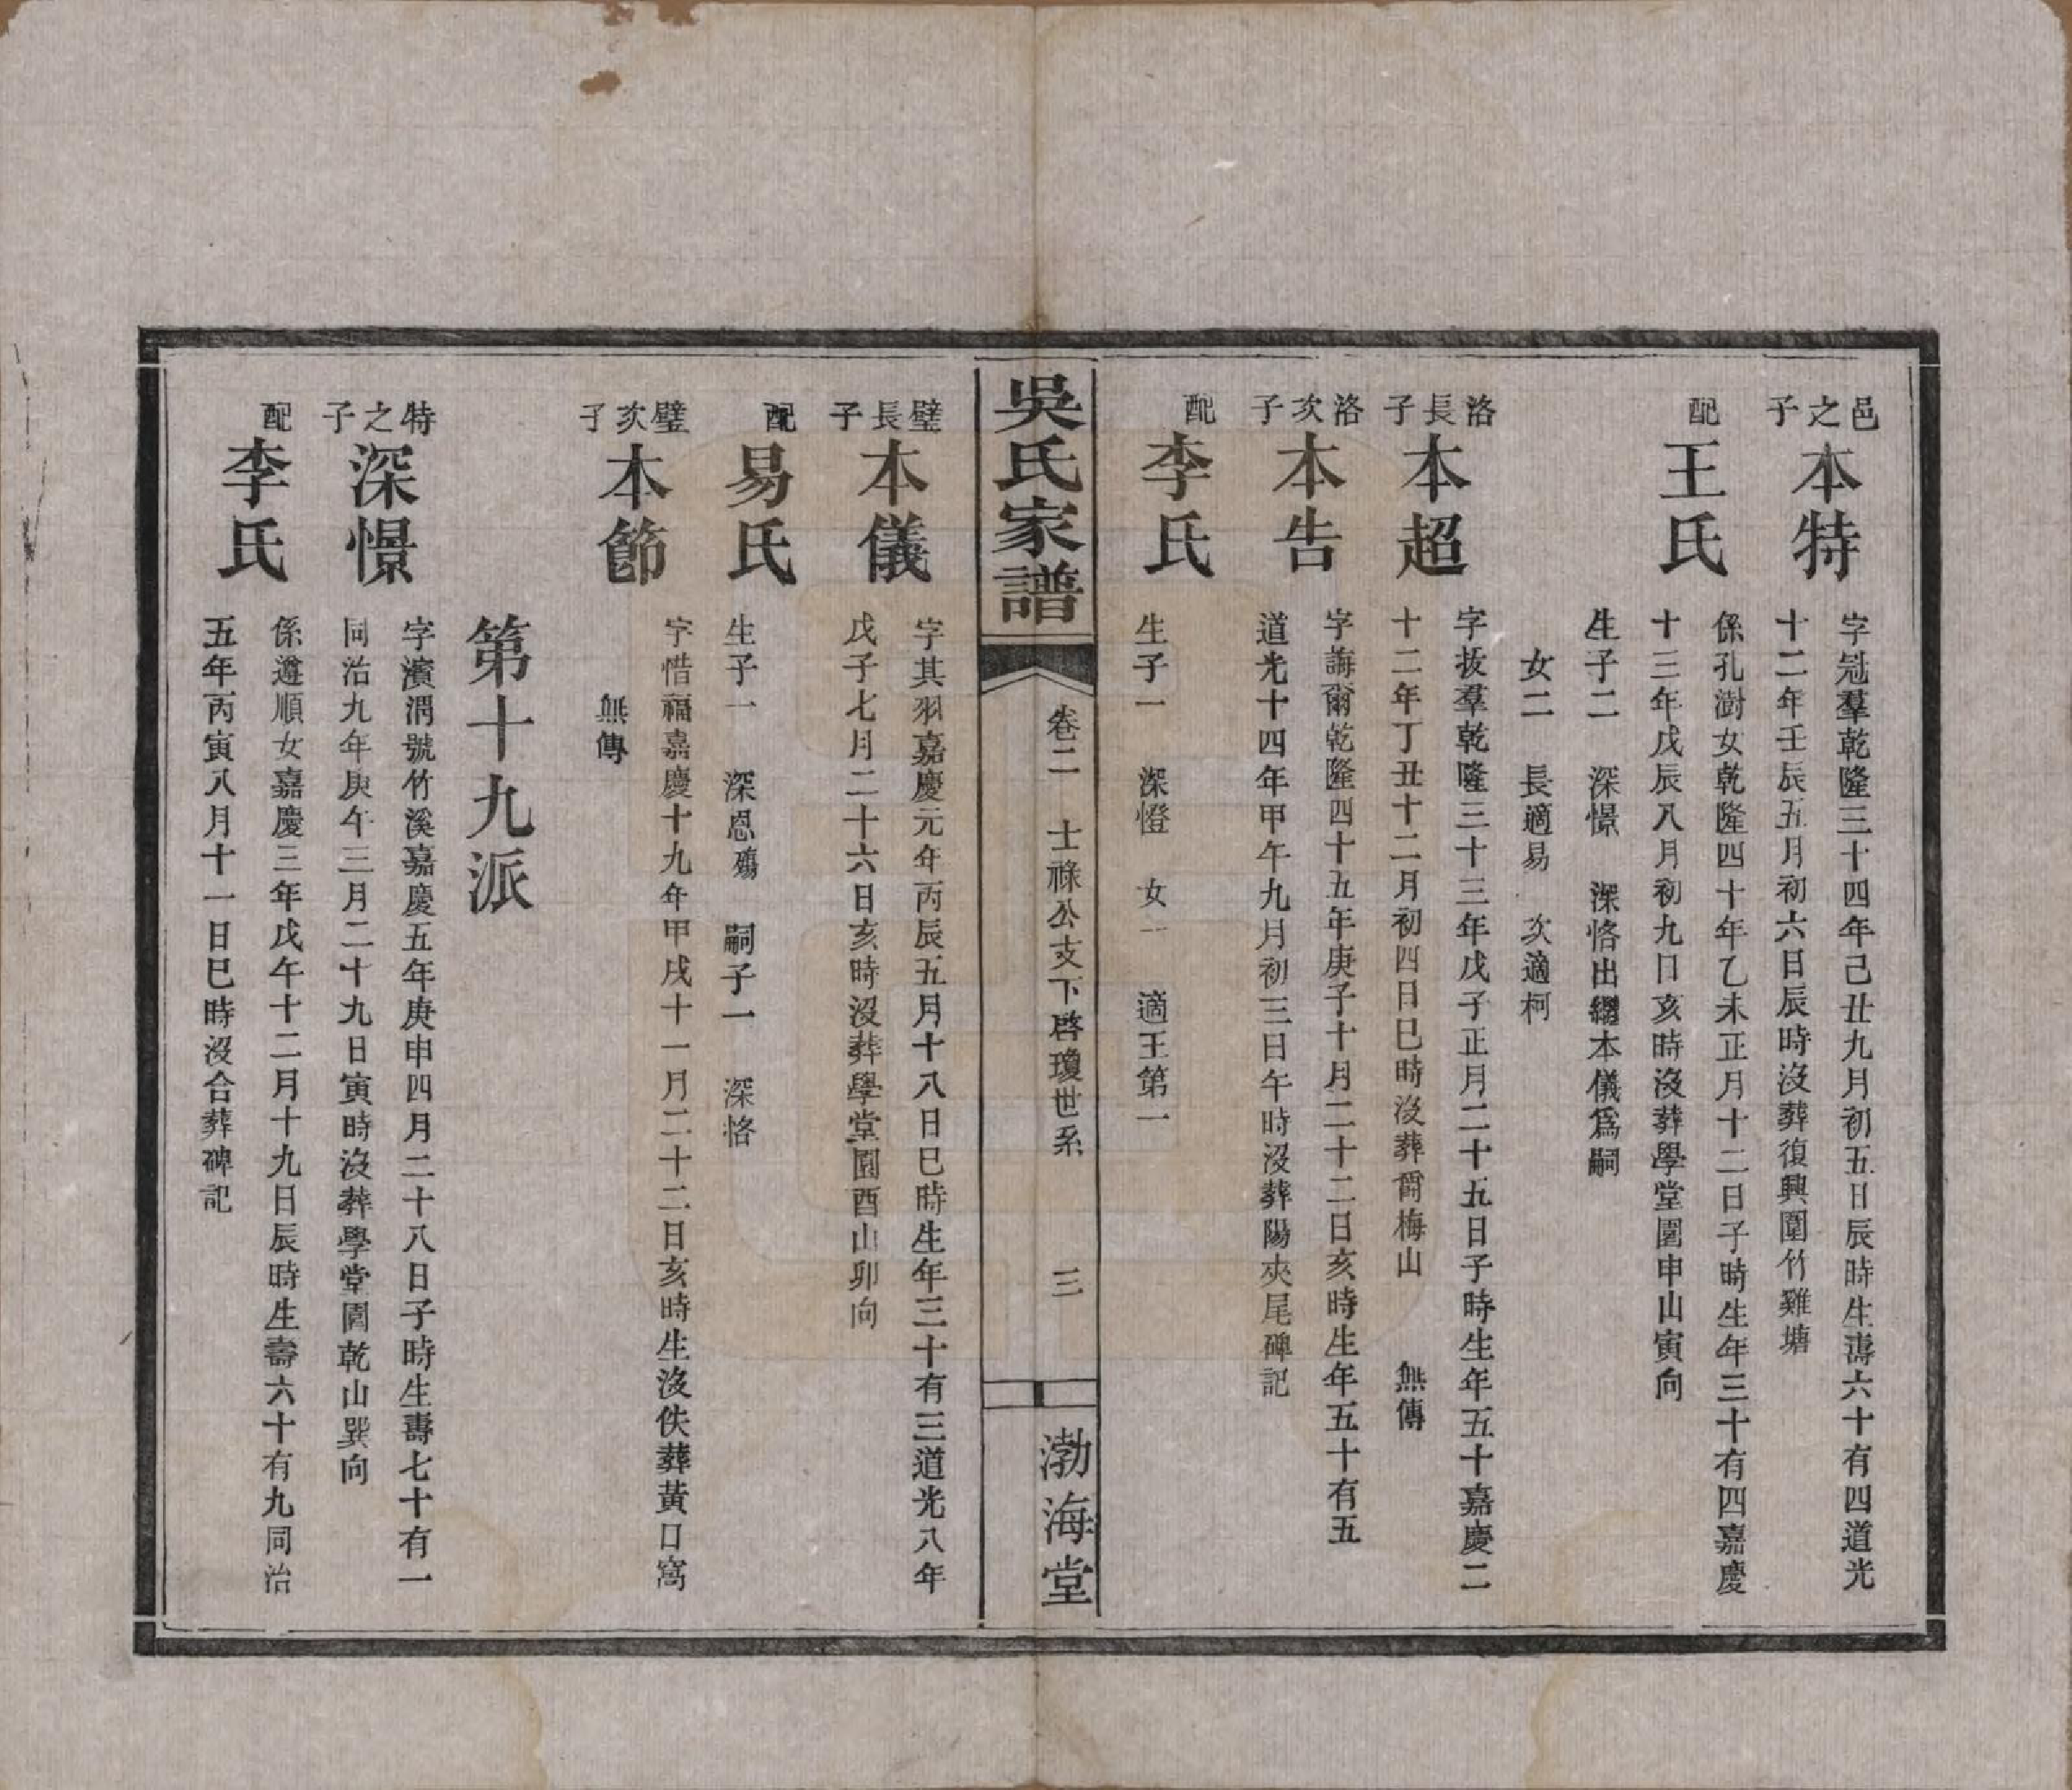 邑之子
本特
字冠羣乾隆三十四年己丑九月初五日辰時生壽六十有四道光
十二年壬辰五月初六日辰時沒葬復興圍竹雞塘
配
王氏
係孔澍女乾隆四十年乙未正月十二日子時生年三十有四嘉慶
十三年戊辰八月初九日亥時沒葬學堂園申山寅向
生子二 深憬 深恪出繼本儀爲嗣
女二 長適易 次適柯
洛長子
本超
字拔羣乾隆三十三年戊子正月二十五日子時生年五十嘉慶二
十二年丁丑十二月初四日巳時沒葬爾梅山 無傳
洛次子
本告
字誨爾乾隆四十五年庚子十月二十二日亥時生年五十有五
道光十四年甲午九月初三日午時沒葬陽夾尾碑記
配
李氏
生子一 深憕 女一 適王第一
吳氏家譜
卷二 士祿公支下啓瓊世系 三
渤海堂
璧長子
本儀
字其羽嘉慶元年丙辰五月十八日巳時生年三十有三道光八年
戊子七月二十六日亥時沒葬學堂園酉山卯向
配
易氏
生子一 深恩殤 嗣子一 深恪
璧次子
本節
字惜福嘉慶十九年甲戌十一月二十二日亥時生沒佚葬黃口窩
無傳
第十九派
特之子
深憬
字濱渭號竹溪嘉慶五年庚申四月二十八日子時生壽七十有一
同治九年庚午三月二十九日寅時沒葬學堂園乾山巽向
配
李氏
係遵順女嘉慶三年戊午十二月十九日辰時生壽六十有九同治
五年丙寅八月十一日巳時沒合葬碑記